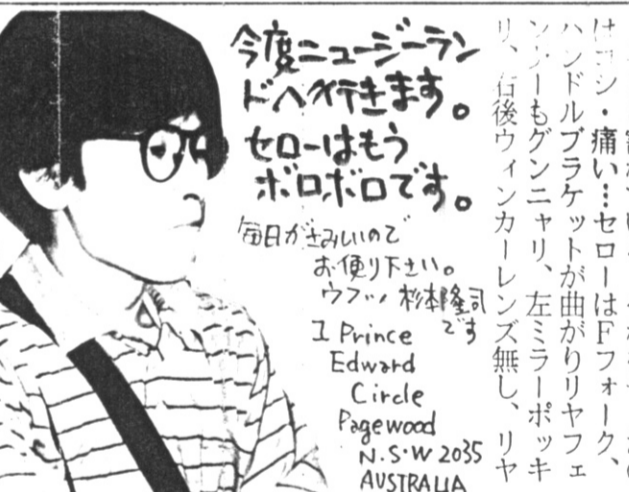 今度ニュージーラン
ドへ行きます。
セローはもう
ボロボロです。
毎日がさみしいので
お便り下さい。
ウフッ 杉本隆司
です
1 Prince
Edward
Circle
Pagewood
N.S.W 2035
AUSTRALIA
・痛い…セローはFフォーク、
ハンドルブラケットが曲がりリヤフェ
ンダーもグンニャリ、左ミラーポッキ
リ、右後ウィンカーレンズ無し、リヤ